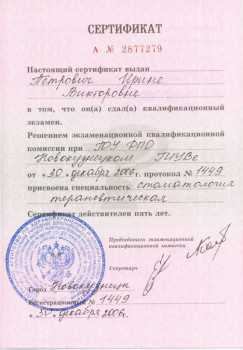 СЕРТИФИКАТ
А № 2877279
Настоящий сертификат выдан
Петрович Ирине
Викторовне
в том, что он(а) сдал(а) квалификационный
экзамен.
Решением экзаменационной квалификационной
комиссии при ГОУ ДПО
Новокузнецком ГИУВе
от «30» декабря 2006г, протокол № 1449
присвоена специальность стоматология
терапевтическая
Сертификат действителен пять лет.
Председатель экзаменационной
квалификационной комиссии
Секретарь
Город Новокузнецк
Регистрационный № 1449
«30» декабря 2006г.